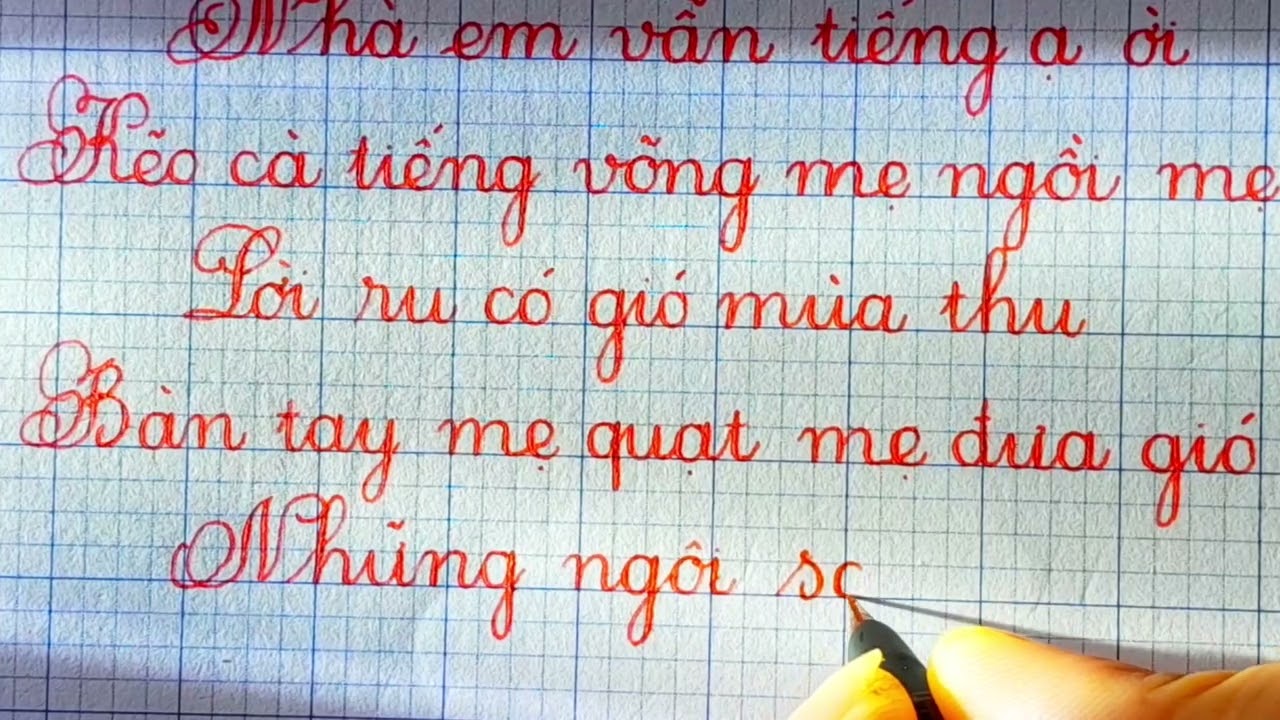 Nhà em vẫn tiếng ạ ời
Kẽo cà tiếng võng mẹ ngồi mẹ
Lời ru có gió mùa thu
Bàn tay mẹ quạt mẹ đưa gió
Những ngôi